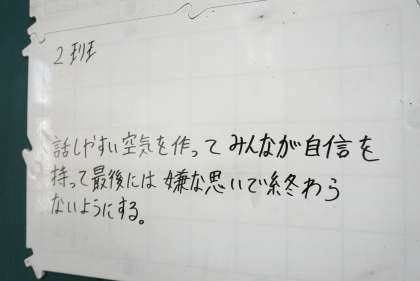 2班
話しやすい空気を作ってみんなが自信を
持って最後には嫌な思いで終わら
ないようにする。